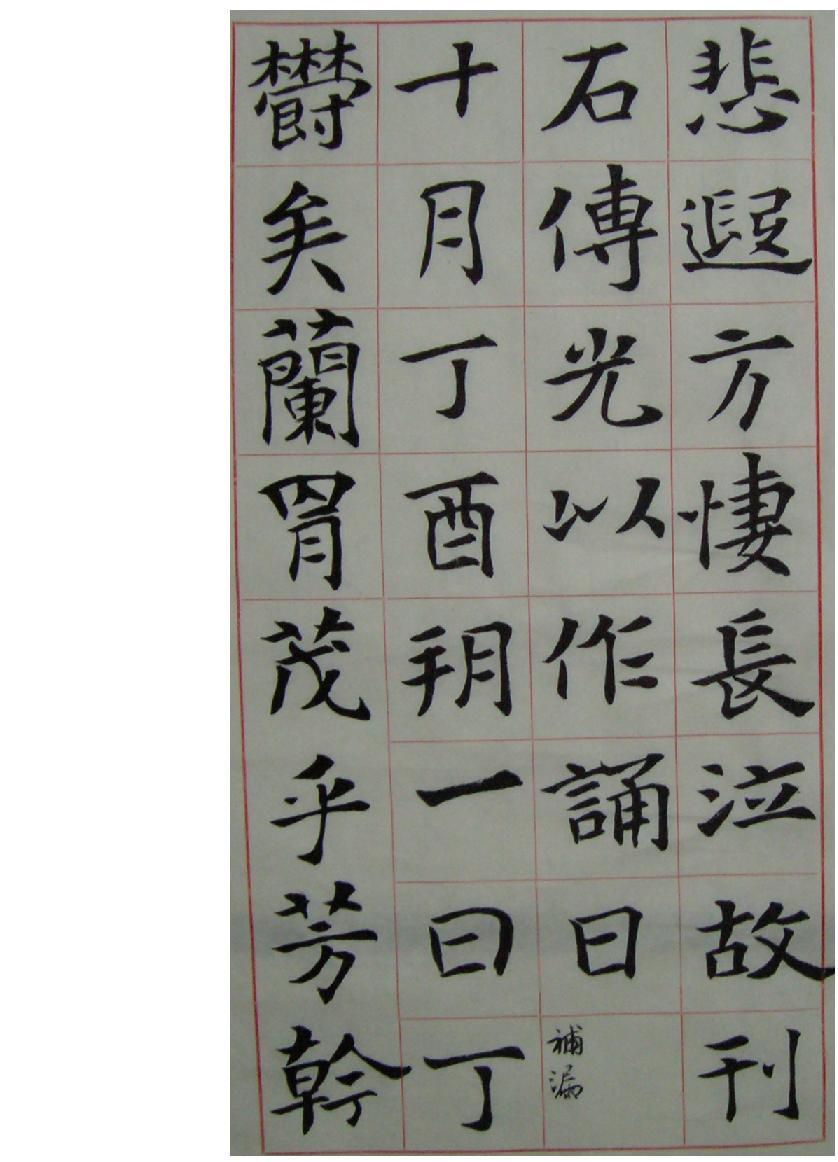 悲遐方悽長泣故刊
石傳光以作誦曰
補漏
十月丁酉朔一日丁
欝矣蘭胄茂乎芳幹